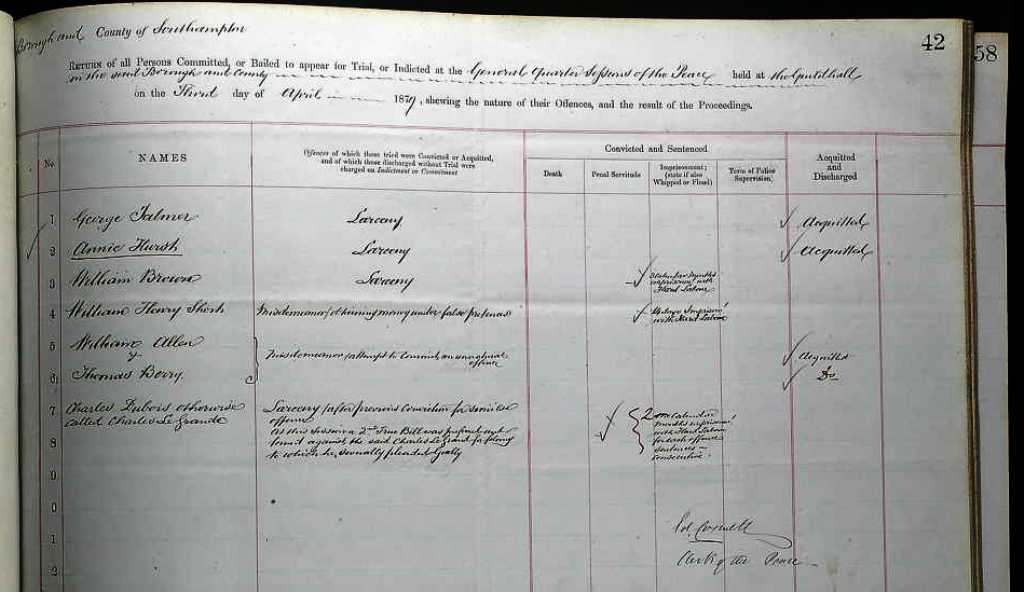 Borough and County of Southampton
42
58
RETURN of all Persons Committed, or Bailed to appear for Trial, or Indicted at the General Quarter Sessions of the Peace held at the Guildhall
in the said Borough and County
on the Third day of April 1879, shewing the nature of their Offences, and the result of the Proceedings.
No. NAMES Offences of which those tried were Convicted or Acquitted, and of which those discharged without Trial were charged on Indictment or Commitment Convicted and Sentenced Acquitted and Discharged
Death Penal Servitude Imprisonment; (state if also Whipped or Fined) Term of Police Supervision
1 George Larceny Acquitted
2 Annie Hursh Larceny Acquitted
3 William Brown Larceny Calendar Months
with
Hard Labour
4 William Henry Short Misdemeanor obtaining money under false pretences
with Hard Labour
5 William Allen Acquitted
& Misdemeanor attempt to Commit an unnatural offence
6 Thomas Berry Do
7 Charles Dubois otherwise Larceny after previous Conviction for similar
called Charles Le Grande offence
8 At this Session a 2nd True Bill was
against the said Charles Le Grand for felony
to which he pleaded Guilty
Calendar
months
with Hard Labour
for each offence
sentences
consecutive
9
0
1
2
Clerk of the Peace